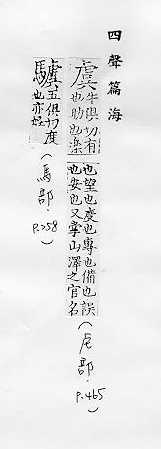 四聲篇海
虞
牛俱切有
也助也樂
也望也度也專也備也誤
也安也又掌山澤之官名
(虍部. P.465)
五俱切度
也亦姓
(馬部. P.258)